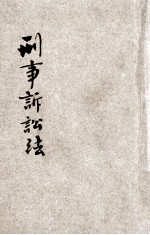 刑事訴訟法